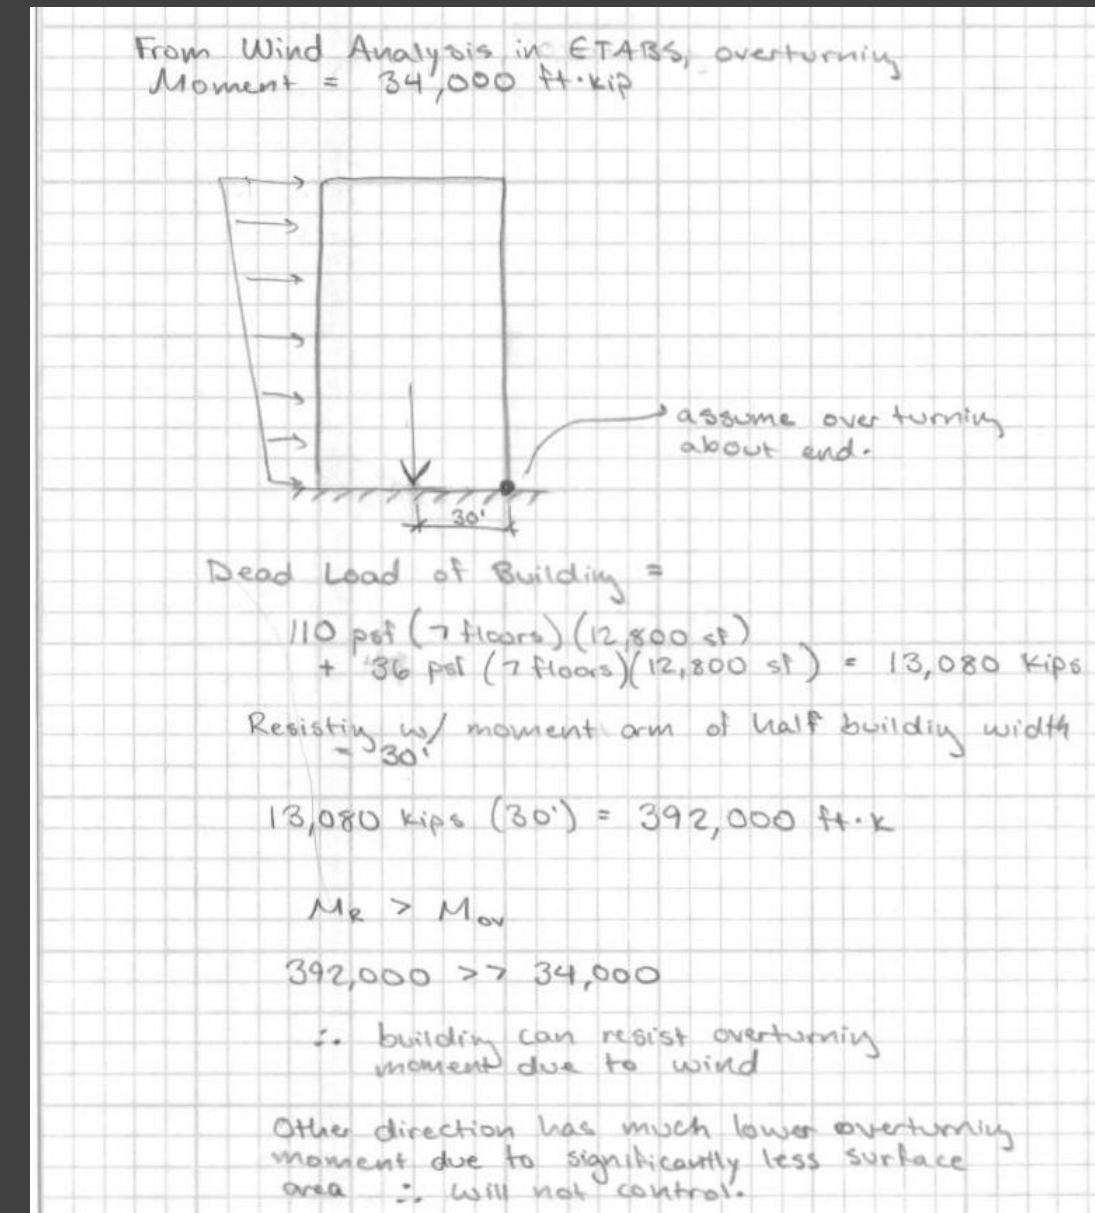 From Wind Analysis in ETABS, overturning
Moment = 34,000 ft·kip
assume overturning
about end.
30'
Dead Load of Building =
110 psf (7 floors)(12,800 sf)
+ 36 psf (7 floors)(12,800 sf) = 13,080 kips
Resisting w/ moment arm of half building width
= 30'
13,080 kips (30') = 392,000 ft·k
MR > Mov
392,000 >> 34,000
∴ building can resist overturning
moment due to wind
Other direction has much lower overturning
moment due to significantly less surface
area ∴ will not control.